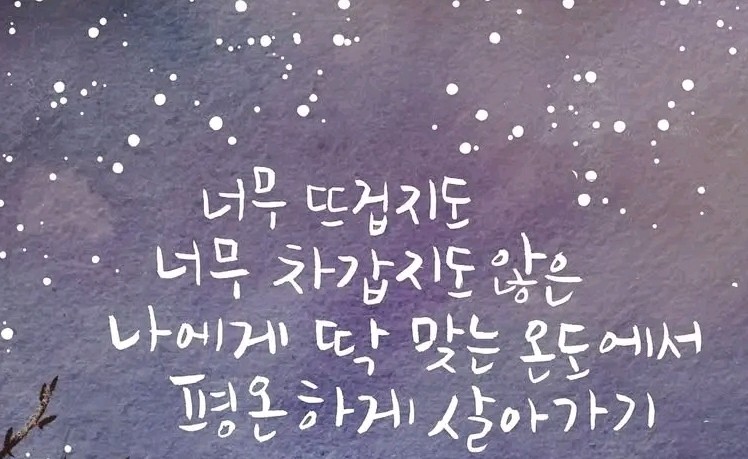 너무 뜨겁지도
너무 차갑지도 않은
나에게 딱 맞는 온도에서
평온하게 살아가기